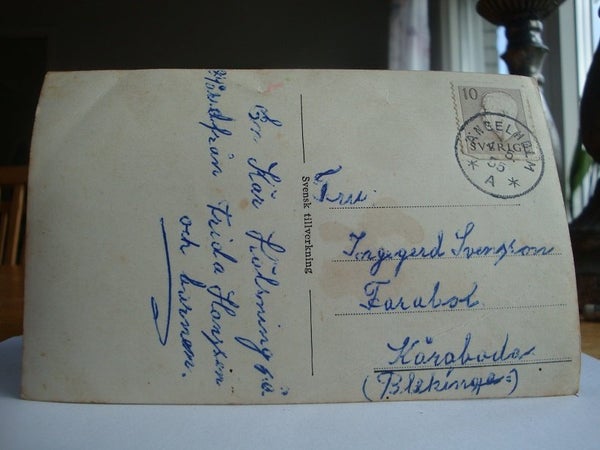 En Kär Hälsning på
från Frida Hansson
och barnen.
Svensk tillverkning
10
SVERIGE
ÄNGELHOLM
55
* A *
Fru
Ingegerd Svensson
Farabol
Kåraboda
(Blekinge)